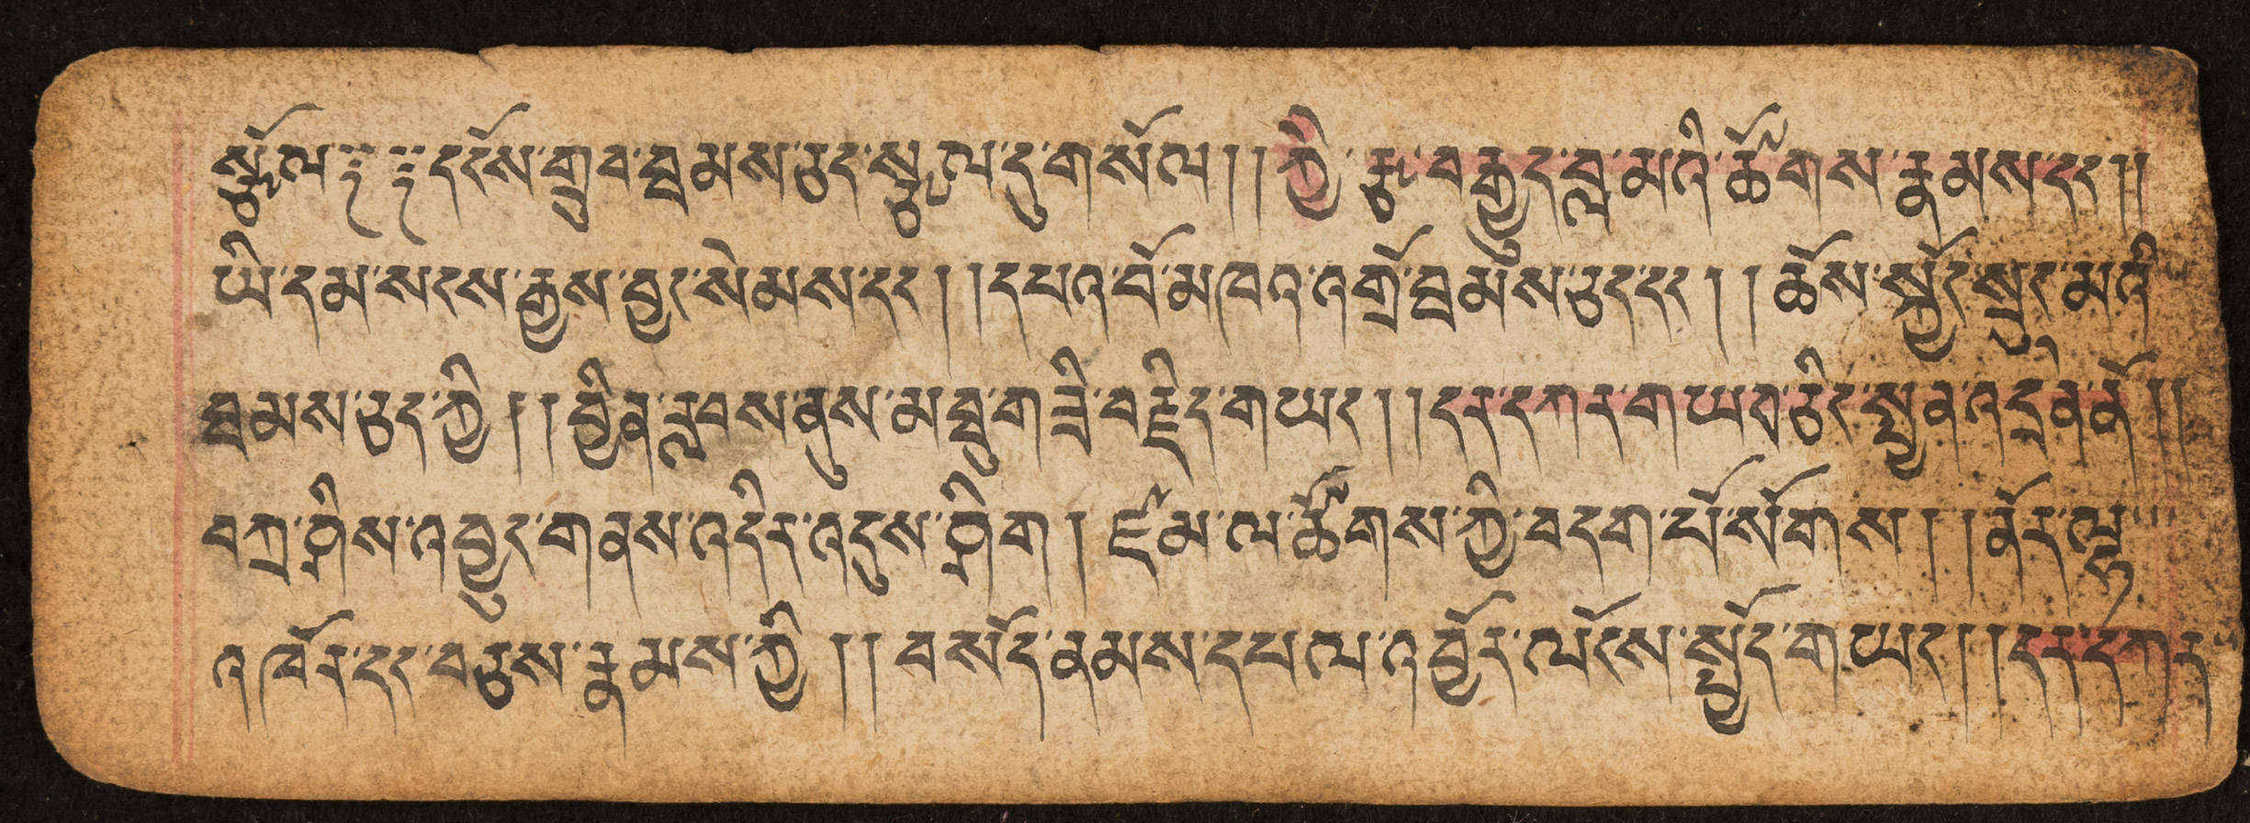 སྩོལ༑ ༑དངོས་གྲུབ་ཐམས་ཅད་སྩལ་དུ་གསོལ། །ཀྱི་རྩ་བརྒྱུད་བླ་མའི་ཚོགས་རྣམས་དང་།།
ཡི་དམ་སངས་རྒྱས་བྱང་སེམས་དང་། །དཔའ་བོ་མཁའ་འགྲོ་ཐམས་ཅད་དང་། །ཆོས་སྐྱོང་སྲུང་མའི་
ཐམས་ཅད་ཀྱི། །བྱིན་རླབས་ནུས་མཐུ་གཟི་བརྗིད་གཡང་། །དར་དཀར་གཡབ་ཅིང་སྤྱན་འདྲེན་ནོ།།
བཀྲ་ཤིས་འབྱུང་གནས་འདིར་འདུས་ཤིག །ཛམ་ལ་ཚོགས་ཀྱི་བདག་པོ་སོགས། །ནོར་ལྷ་
འཁོར་དང་བཅས་རྣམས་ཀྱི། །བསོད་ནམས་དཔལ་འབྱོར་ལོངས་སྤྱོད་གཡང་། །དར་དཀར